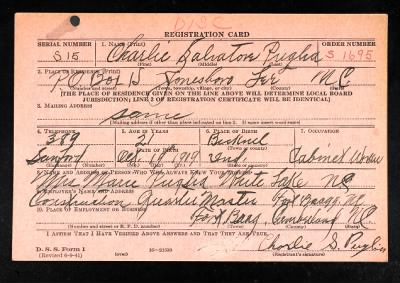 DISC
REGISTRATION CARD
SERIAL NUMBER 1. Name (Print) ORDER NUMBER
S 15 Charlie Salvatore Puglia S 1695
(First) (Middle) (Last)
2. Place of Residence (Print)
P.O. Box Jonesboro Lee N.C.
(Number and street) (Town, township, village, or city) (County) (State)
[THE PLACE OF RESIDENCE GIVEN ON THE LINE ABOVE WILL DETERMINE LOCAL BOARD
JURISDICTION; LINE 2 OF REGISTRATION CERTIFICATE WILL BE IDENTICAL]
3. Mailing Address
same
[Mailing address if other than place indicated on line 2. If same insert word same]
4. Telephone 5. Age in Years 6. Place of Birth 7. Occupation
389 21 Bicknell
Date of Birth (Town or county)
Sanford Oct. 1919 Ind. Cabinet
(Exchange) (Number) (Mo.) (Day) (Yr.) (State or country)
8. Name and Address of Person Who Will Always Know Your Address
Mrs Marie Puglia White Lake N.C.
9. Employer's Name and Address
Construction Quarter Master Fort Bragg N.C.
10. Place of Employment or Business
Fort Bragg Cumberland N.C.
(Number and street or R. F. D. number) (Town) (County) (State)
I Affirm That I Have Verified Above Answers and That They Are True.
D. S. S. Form 1 Charlie S. Puglia
(Revised 6-9-41) (over) (Registrant's signature)